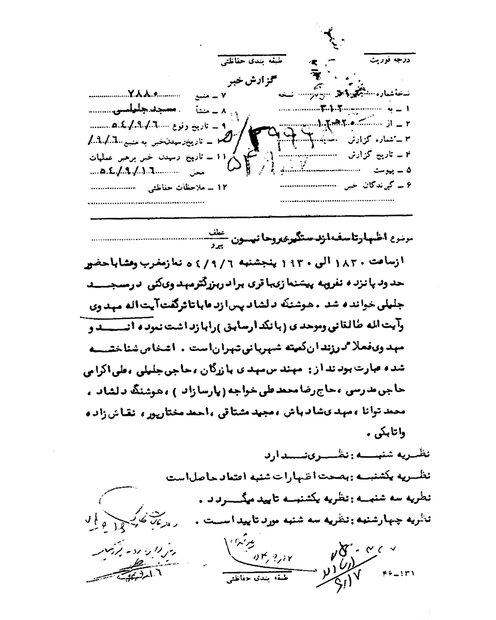 درجه فوریت
طبقه بندی حفاظتی
گزارش خبر
نسخه شماره
نسخه
۷ ـ منبع ۷۸۸۰
۱ ـ به ۳۱۲
۸ ـ منشأ مسجد جلیلی
۲ ـ از
۹ ـ تاریخ وقوع ۵۴/۹/۶
۳ ـ شماره گزارش
۱۰ ـ تاریخ رسیدن خبر به منبع ۹/۶/
۴ ـ تاریخ گزارش
۱۱ ـ تاریخ رسیدن خبر برهبر عملیات
۵ ـ پیوست
محل ۵۴/۹/۱۶
۶ ـ گیرندگان خبر
۱۲ ـ ملاحظات حفاظتی
موضوع اظهار تاسف از دستگیری روحانیون
عطف
پیرو
از ساعت ۱۸۳۰ الی ۱۹۳۰ پنجشنبه ۵۴/۹/۶ نماز مغرب و عشا با حضور
حدود پانزده نفر به پیشنمازی باقری برادر بزرگتر مهدوی کنی در مسجد
جلیلی خوانده شد . هوشنگ دلشاد پس از دعا با تاثر گفت آیت اله مهدوی
و آیت اله طالقانی و موحدی ( بانکدار سابق ) را بازداشت نموده اند و
مهدوی فعلا در زندان کمیته شهربانی تهران است . اشخاص شناخته
شده عبارت بودند از : مهندس مهدی بازرگان ، حاجی جلیلی ، علی اکرامی
حاجی مدرسی ، حاج رضا محمد علی خواجه ( پارسا زاد ) ، هوشنگ دلشاد ،
محمد توانا ، مهدی شادباش ، مجید مشتاقی ، احمد مختارپور ، نقاش زاده
و اتابکی .
نظریه شنبه : نظری ندارد
نظریه یکشنبه : بصحت اظهارات شنبه اعتماد حاصل است
نظریه سه شنبه : نظریه یکشنبه تایید میگردد .
نظریه چهارشنبه : نظریه سه شنبه مورد تایید است .
طبقه بندی حفاظتی
۴۶ـ۱۳۱